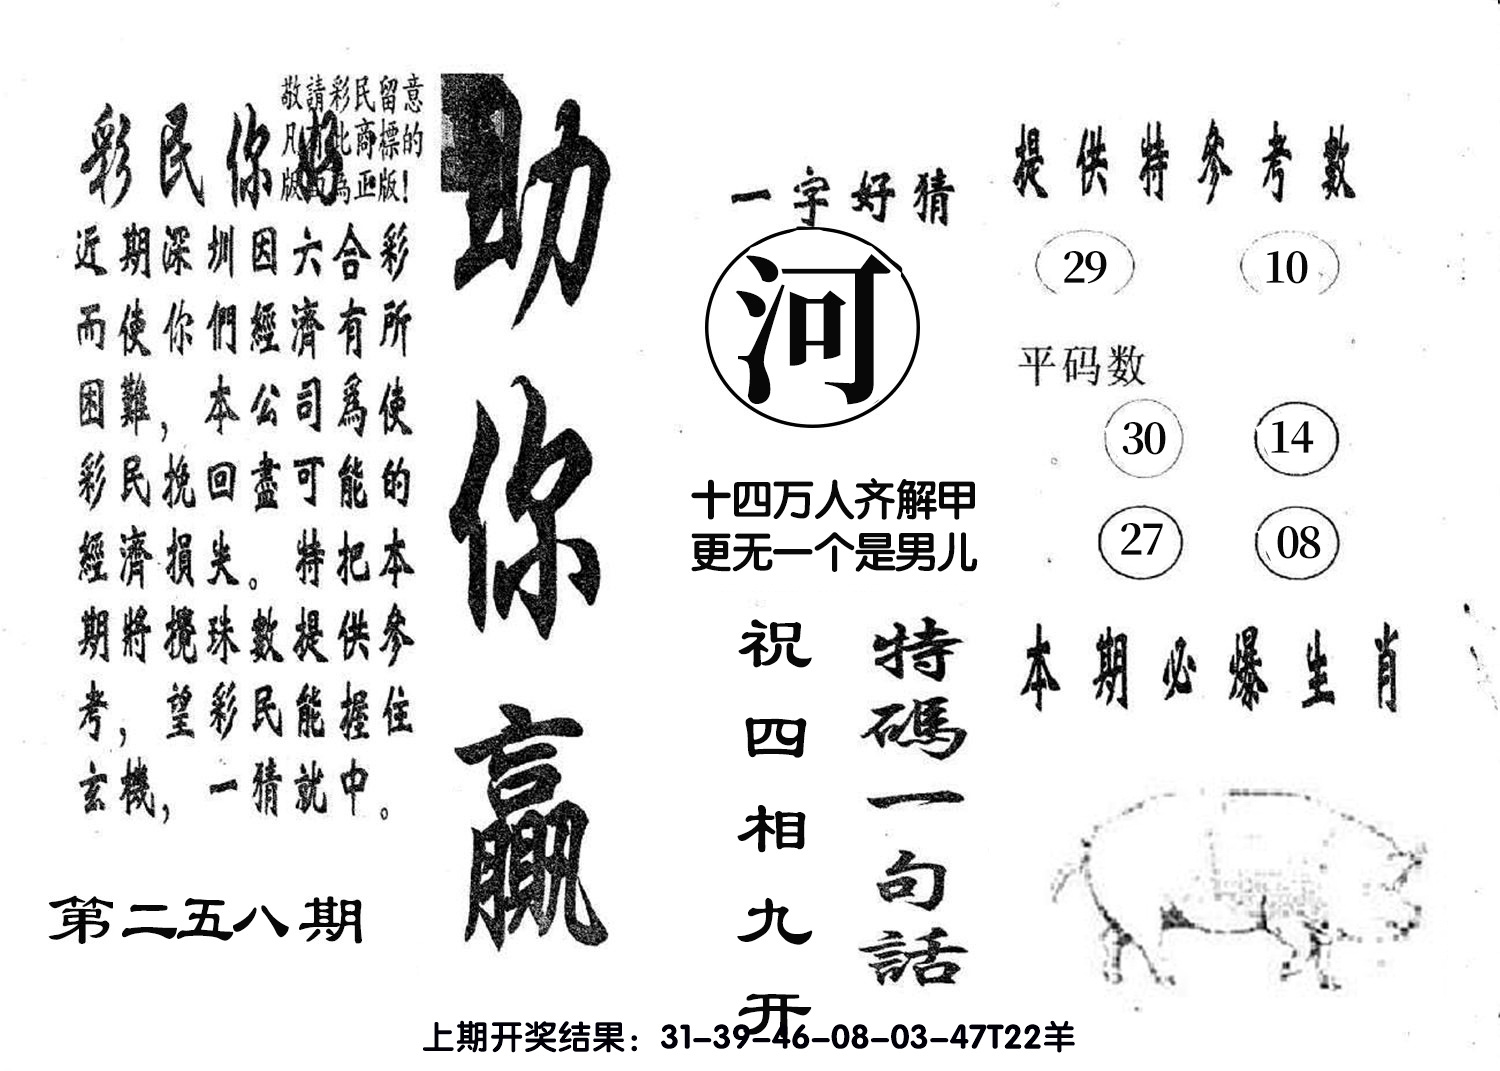 敬請彩民留意
凡有此商標的
版面為正版！
彩民你好
近期深圳因六合彩
而使你們經濟有所
困難，本公司爲使
彩民挽回盡可能的
經濟損失。特把本
期將攪珠數提供參
考，望彩民能握住
玄機，一猜就中。
第二五八期
助你贏
一字好猜
河
十四万人齐解甲
更无一个是男儿
特碼一句話
祝四相九开
提供特參考數
29 10
平码数
30 14
27 08
本期必爆生肖
上期开奖结果：31-39-46-08-03-47T22羊